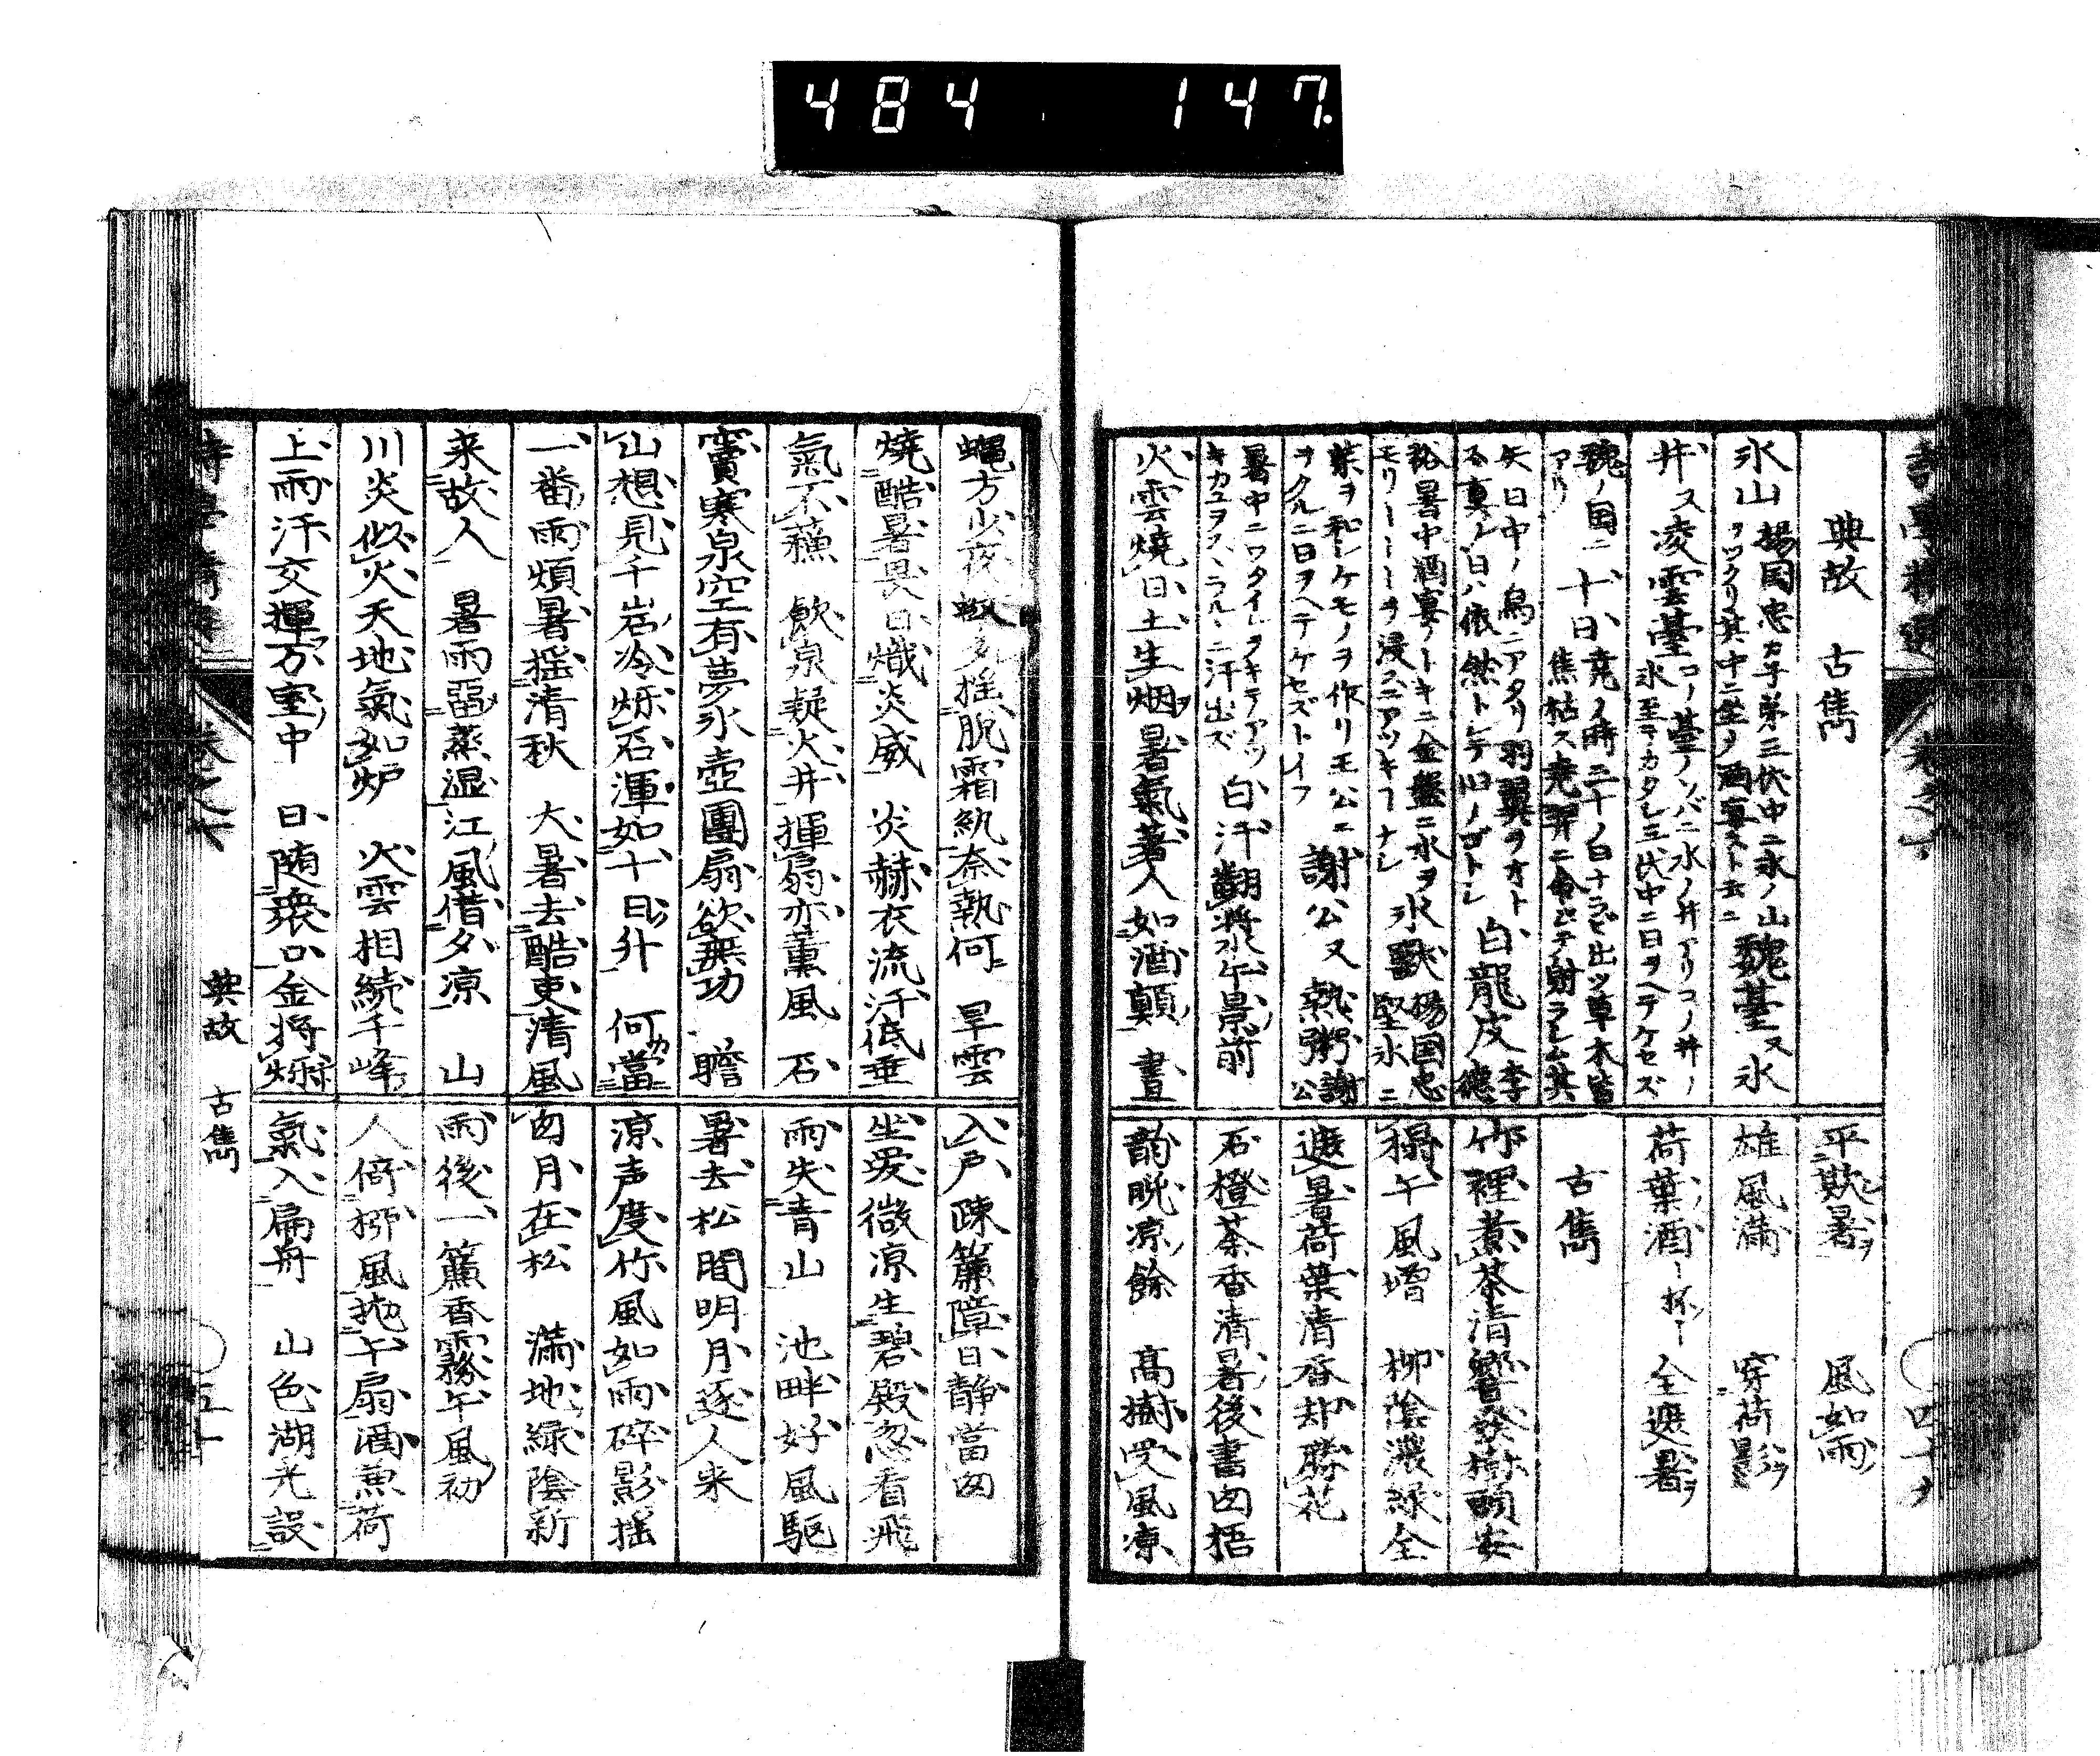 484 147.
典故 古雋
氷山 楊国忠カ子弟三伏中ニ氷ノ山ヲツクリ其中ニ坐ノ酒宴スト云ニ 魏臺又氷
井ス 凌雲臺 コノ臺ノソバニ氷ノ井アリコノ井ノ氷至テカタシ三伏中ニ日ヲヘテケセズ
魏ノ国ニアリ 十日 尭ノ時ニ十ノ日ナラビ出ツ草木皆焦枯ス尭羿ニ命ピテ射ラシム其
矢日中ノ烏ニアタリ羽翼ヲオトス真ノ日ハ依然トシテ旧ノゴトシ 白龍皮 李德
裕暑中酒宴ノトキニ金盤ニ水ヲモリーーーーヲ浸スニアツキフナシ 氷獸 楊国忠堅氷ニ
葉ヲ和シケモノヲ作リ王公エヲクルニ日ヲヘテケセズトイフ 謝公又 熱粥 謝公
暑中ニワタイレヲキテアツキカユヲスヽラルニ汗出ズ 白汗翻漿水午景前
火雲燒日土生烟暑氣著人如酒顛 晝
平欺暑ヲ 風如雨
雄風滿 穿荷影ヲ
荷葉酒ー杯ー 全避暑ヲ
古雋
竹裡煮茶清響發樹頭安
榻午風增 柳陰濃緑全
遮暑荷葉清香却勝花
石橙茶香清暑後書囱梧
韵晩凉餘 高樹受風凉
蠅方少夜蚊多搖脫霜紈奈熱何 旱雲
燒酷暑畏日熾炎威 炎赫衣流汗低垂
氣不蘓 飲泉疑火井揮扇亦薫風 石
竇寒泉空有夢氷壺團扇欲無功 瞻
山想見千岩冷爍石渾如十日升 何當
一番雨煩暑揺清秋 大暑去酷吏清風
来故人 暑雨霤蒸湿江風借夕凉 山
川炎似火天地氣如炉 火雲相続千峰
上雨汗交揮万室中 日随衆口金将爍
入戸疎簾障日静當囱
坐愛微凉生碧殿忽看飛
雨失青山 池畔好風駆
暑去松間明月逐人来
凉声度竹風如雨碎影揺
囱月在松 滿地緑陰新
雨後一簾香霧午風初
人倚栁風抛午扇酒熏荷
氣入扁舟 山色湖光設
典故 古雋